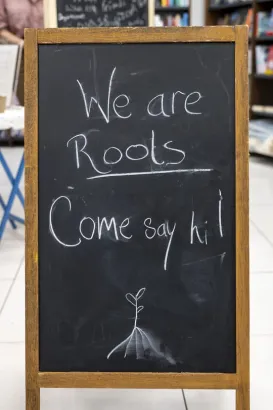 We are
Roots
Come say hi!